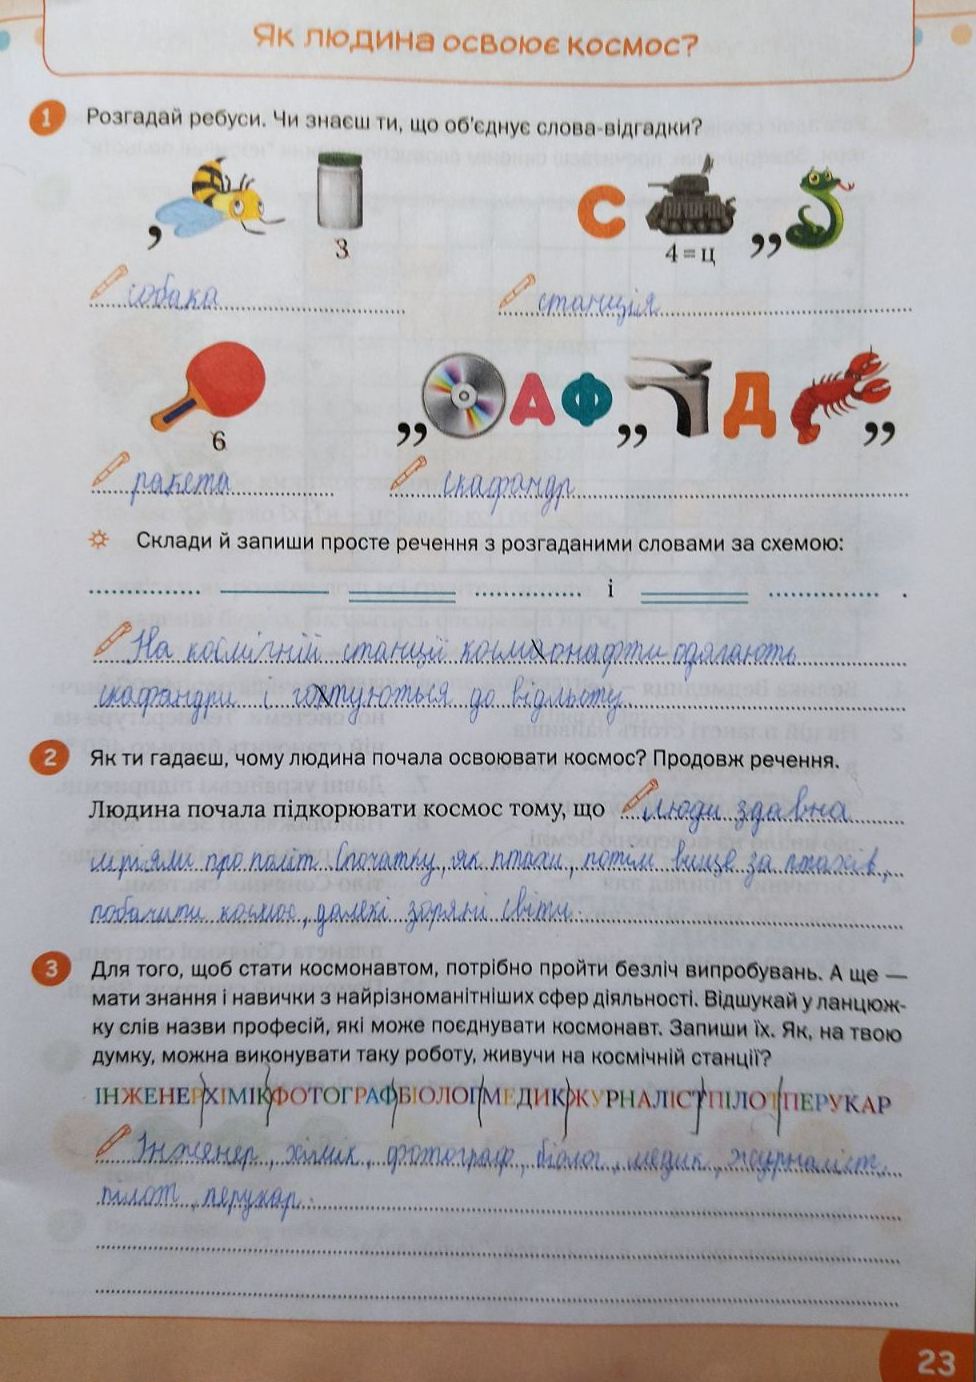 Як людина освоює космос?
1 Розгадай ребуси. Чи знаєш ти, що об'єднує слова-відгадки?
С
, 3 4=ц ,,
собака станція
6 ,, А Ф ,, Д ,,
ракета скафандр
Склади й запиши просте речення з розгаданими словами за схемою:
і .
На космічній станції космонафти одягають
скафандри і готуються до відльоту
2 Як ти гадаєш, чому людина почала освоювати космос? Продовж речення.
Людина почала підкорювати космос тому, що люди здавна
мріяли про політ. Спочатку, як птахи, потим вище за птахів,
побачити космос, далекі зоряні світи.
3 Для того, щоб стати космонавтом, потрібно пройти безліч випробувань. А ще —
мати знання і навички з найрізноманітніших сфер діяльності. Відшукай у ланцюж-
ку слів назви професій, які може поєднувати космонавт. Запиши їх. Як, на твою
думку, можна виконувати таку роботу, живучи на космічній станції?
ІНЖЕНЕРХІМІКФОТОГРАФБІОЛОГМЕДИКЖУРНАЛІСТПІЛОТПЕРУКАР
Інженер, хімік, фотограф, біолог, медик, журналіст,
пілот, перукар.
23